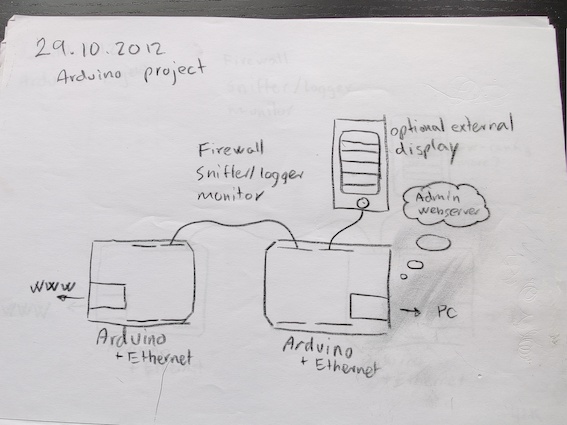 29.10.2012
Arduino project
Firewall
Snifter/logger
monitor
optional external
display
Admin
webserver
WWW
PC
Arduino
+ Ethernet
Arduino
+ Ethernet